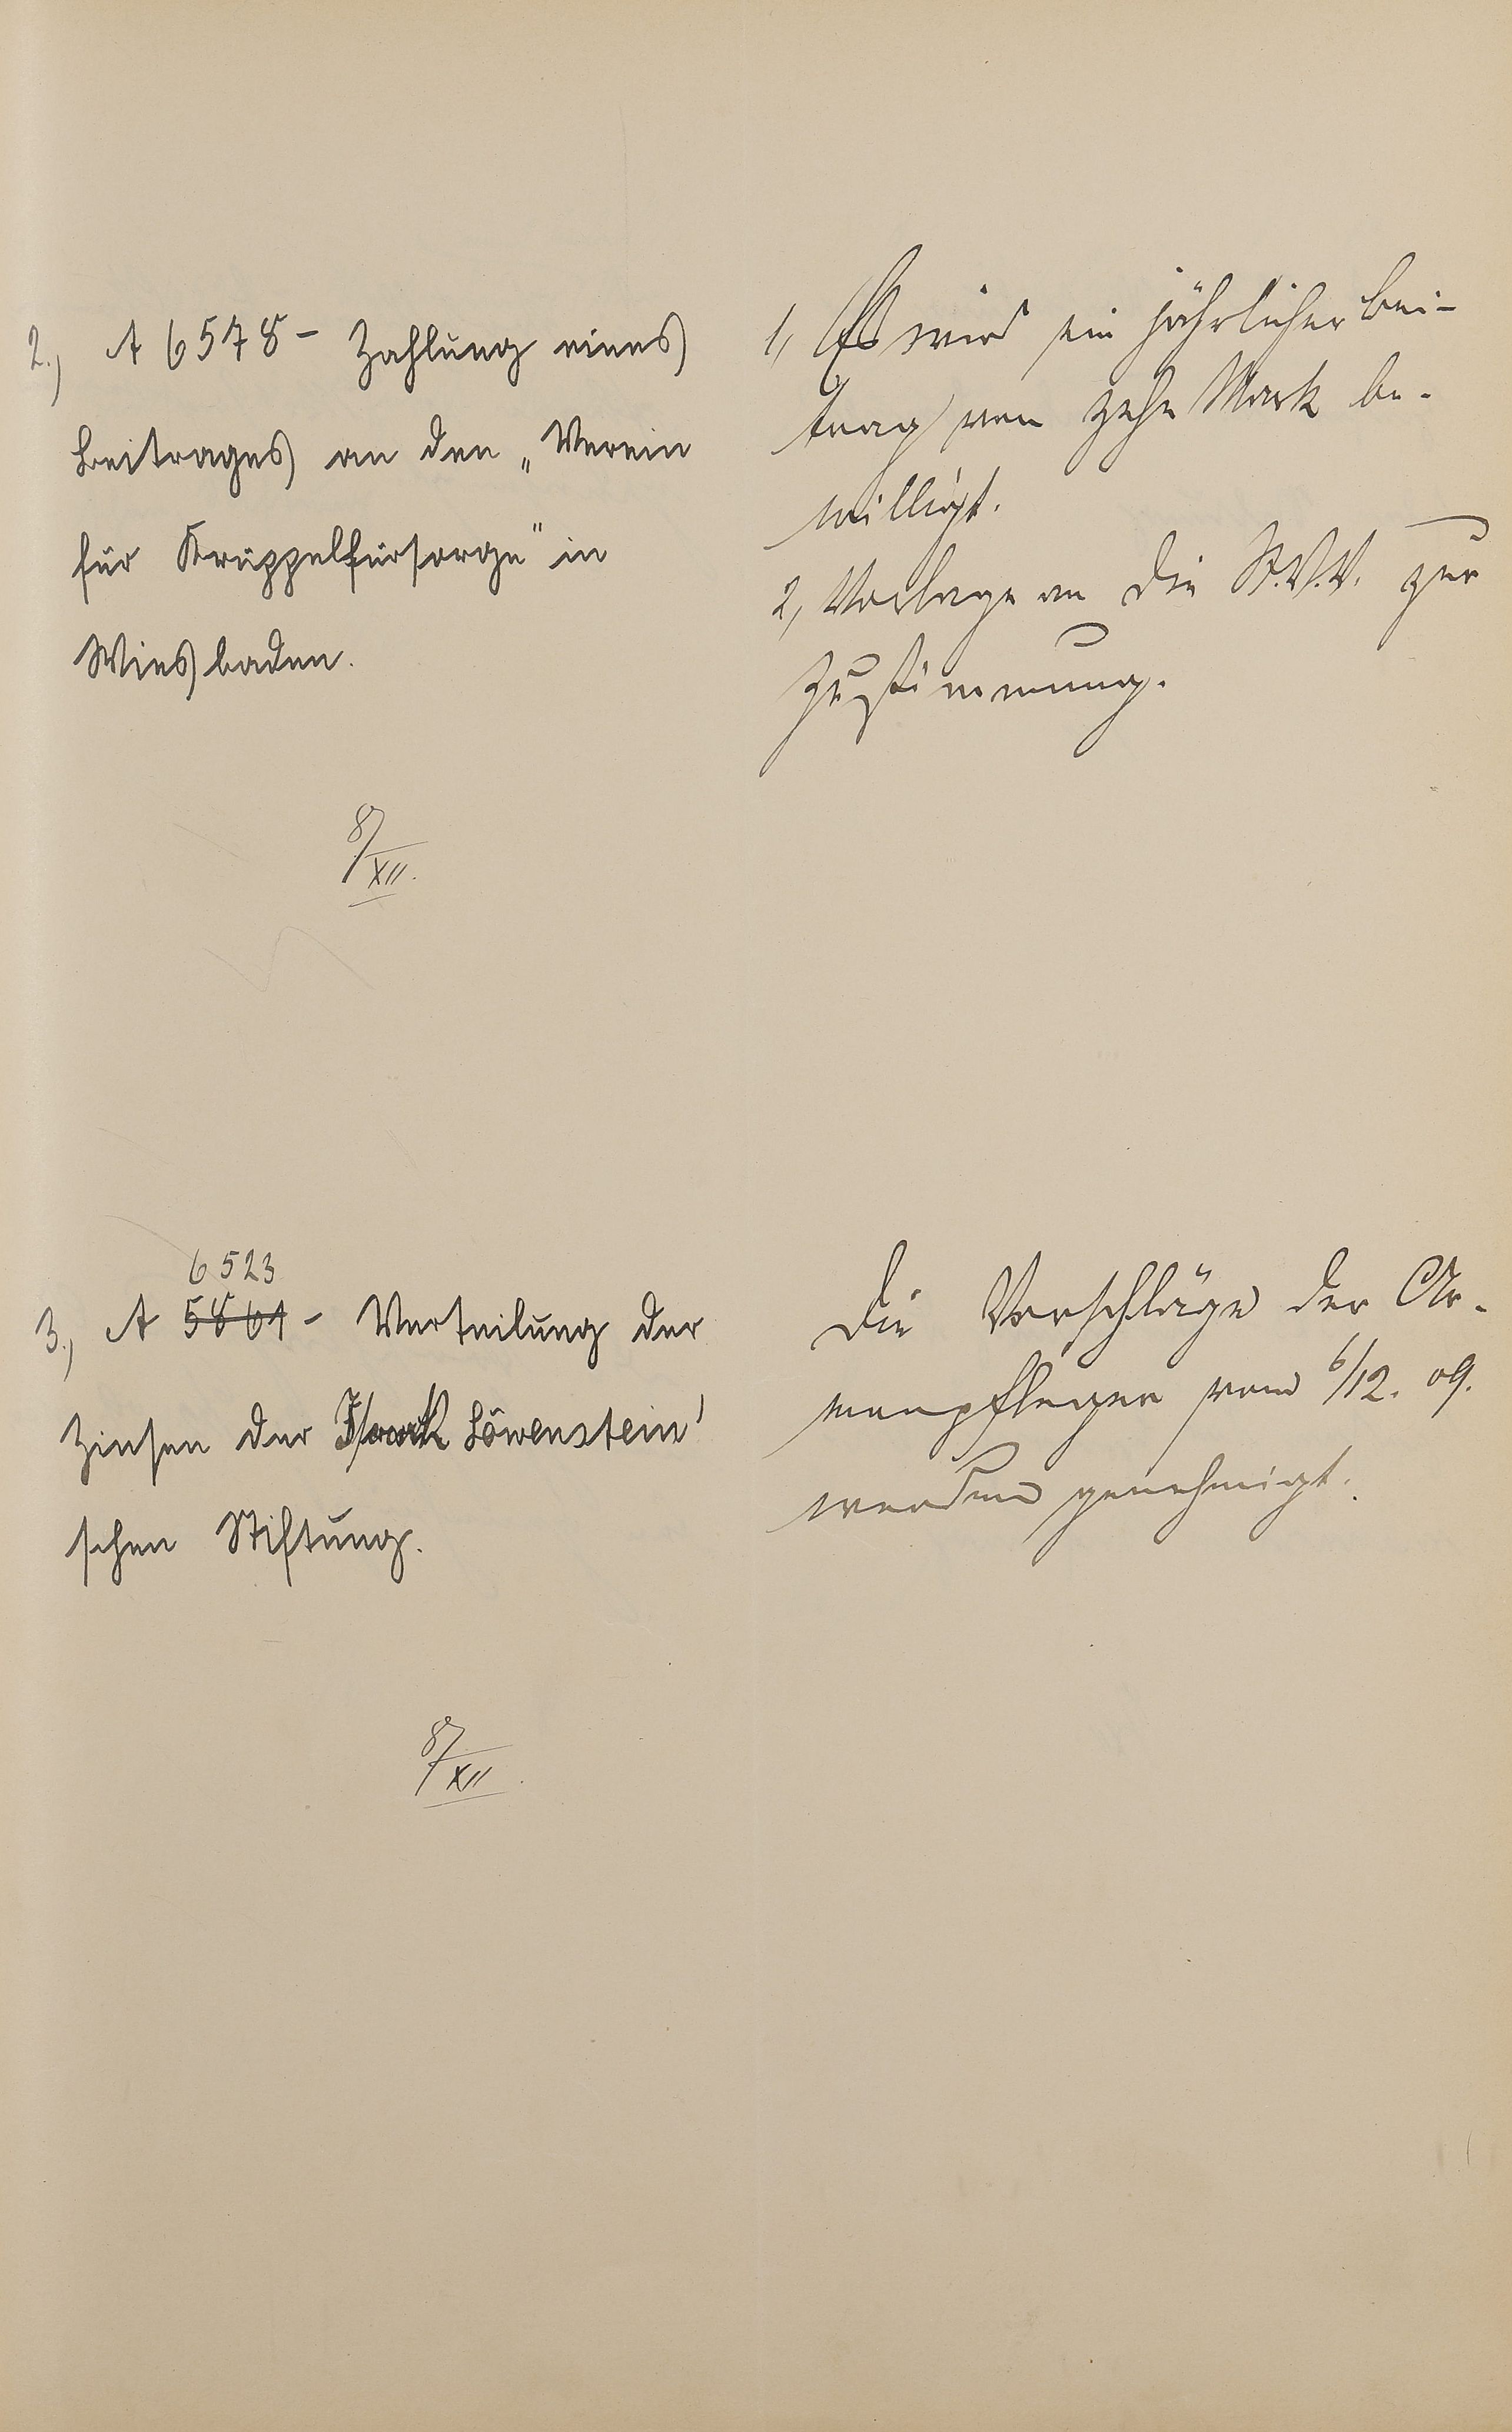 2.) A 6578 - Zahlung eines
Beitrages an den „Verein
für Krüppelfürsorge" in
Wiesbaden.
8/XII.
1, Es wird ein jährlicher Bei-
trag von zehn Mark be-
willigt.
2, Vorlage an die St.V.V. zur
Zustimmung.
6523
3.) A 5861 - Verteilung der
Zinsen der Isaak Löwenstein'
schen Stiftung.
8/XII.
Die Vorschläge der Ar-
menpfleger vom 6/12. 09.
werden genehmigt.